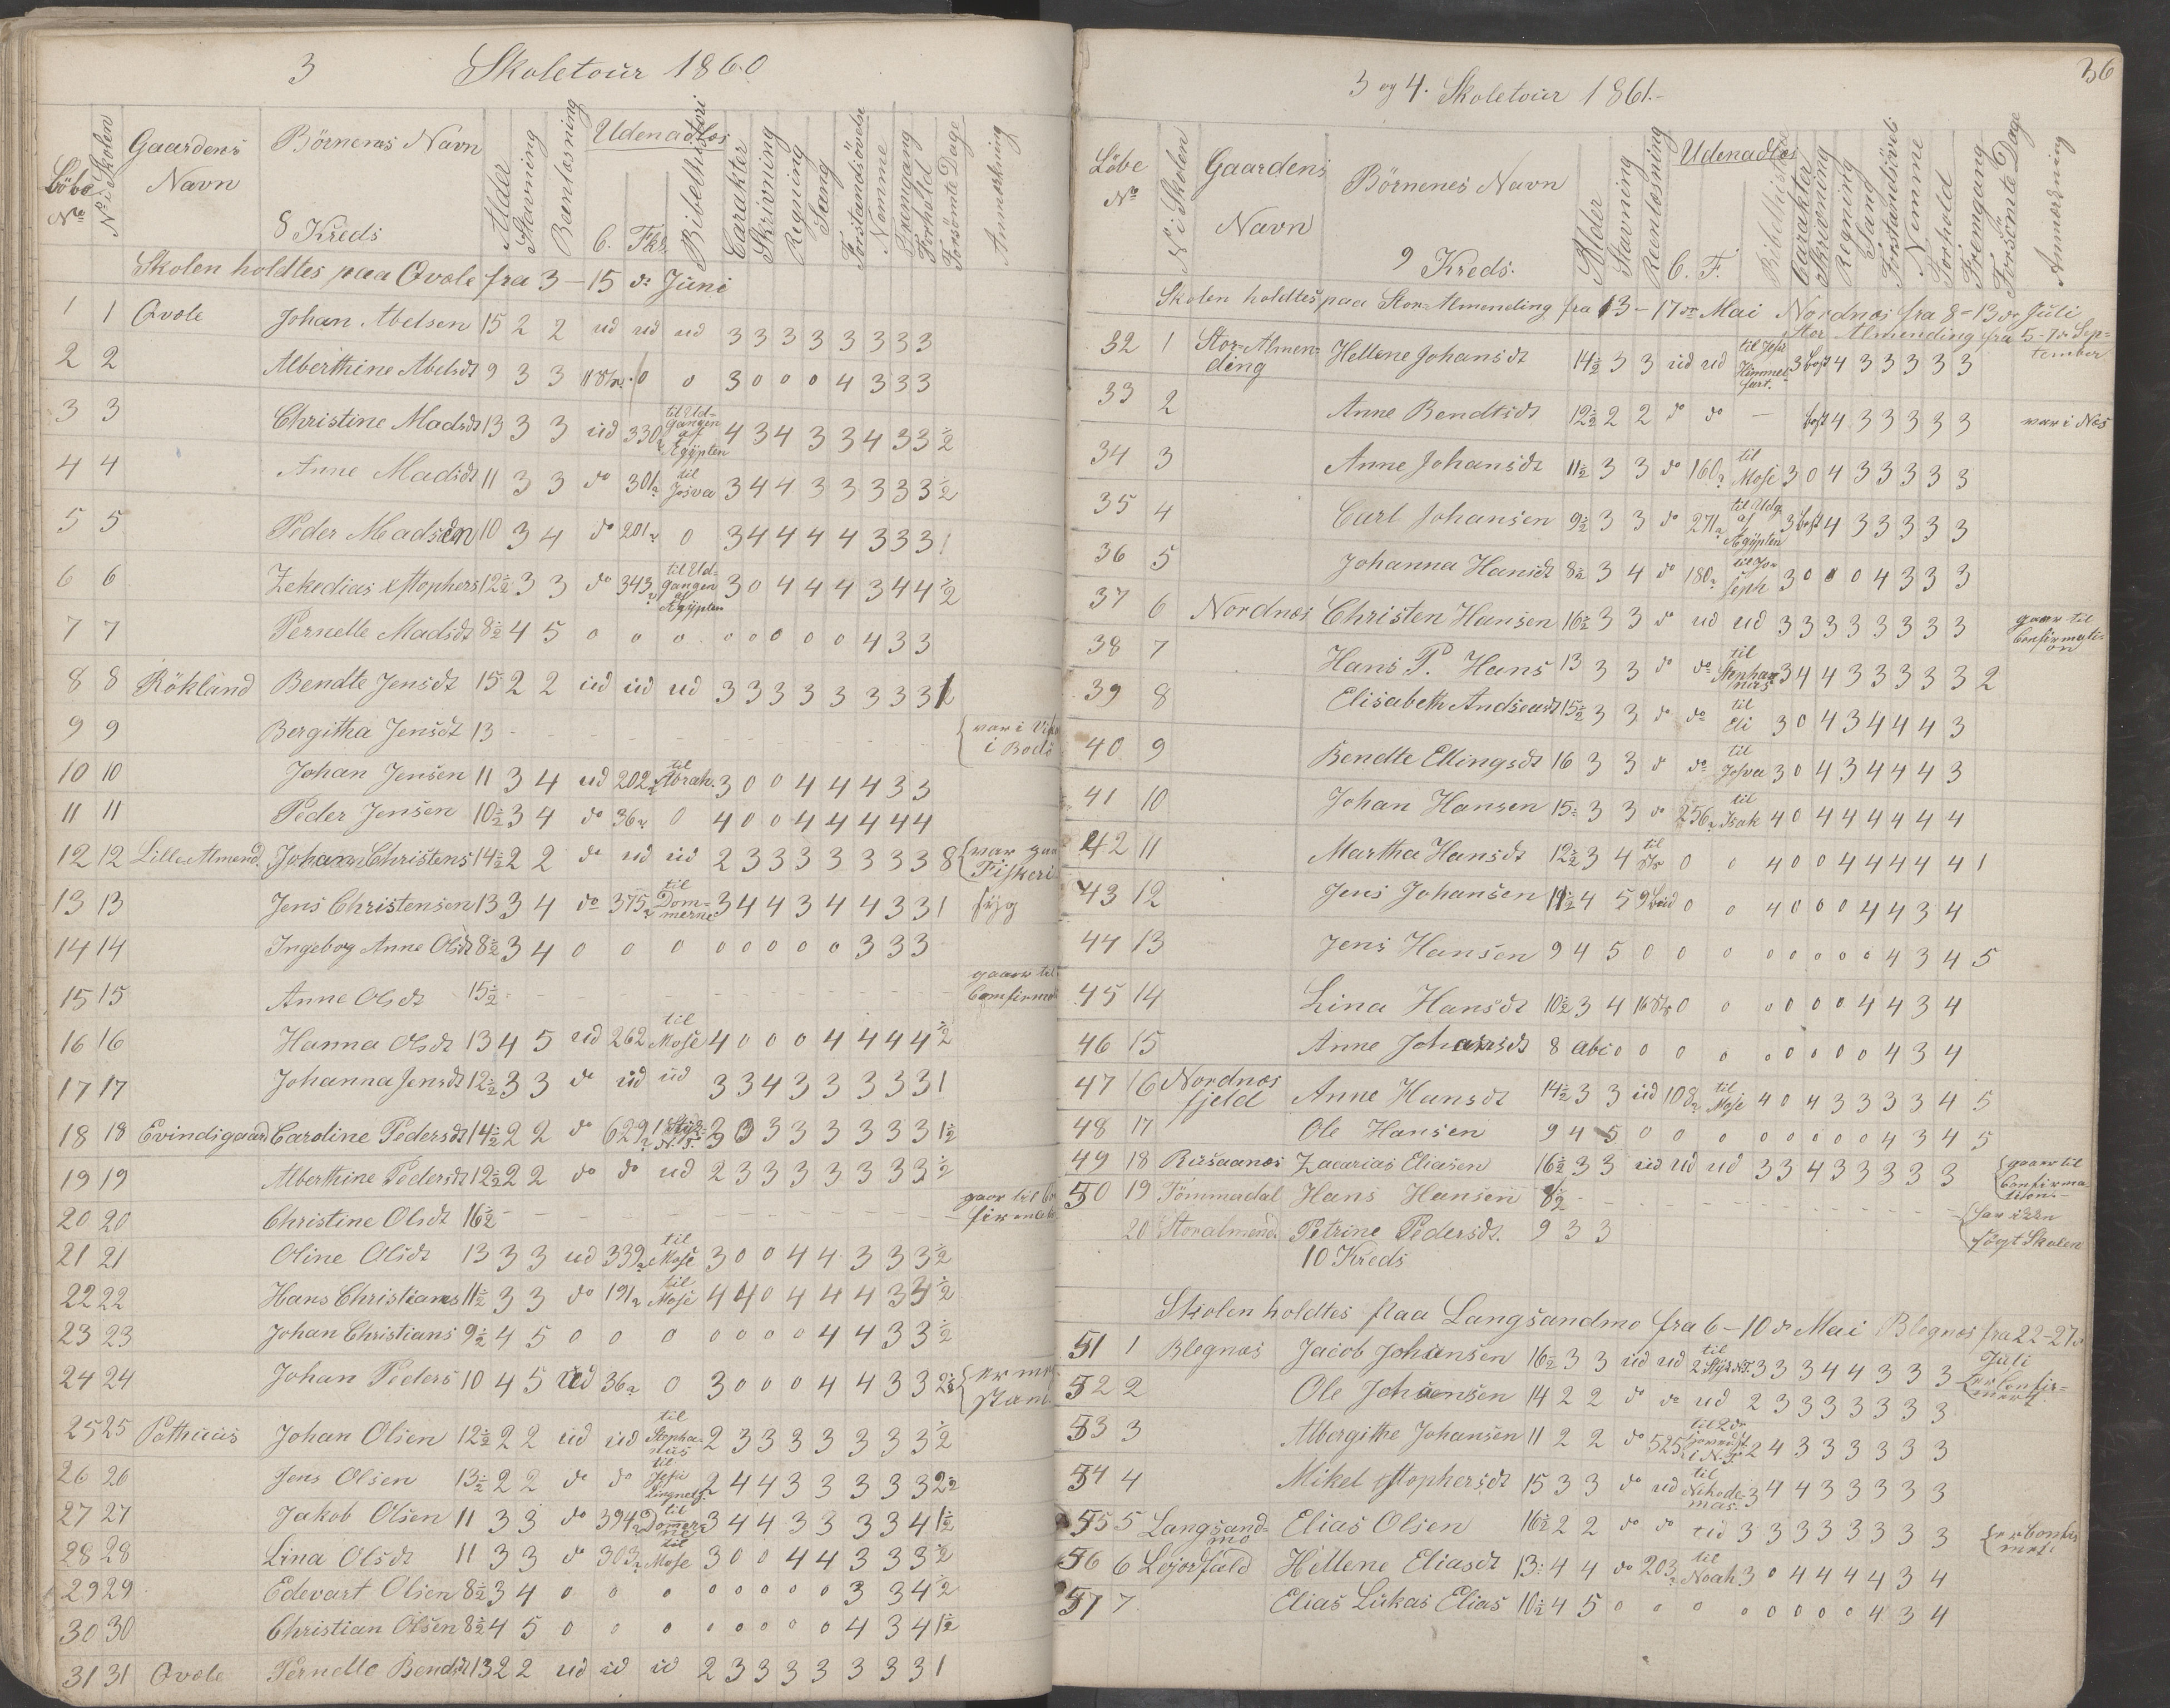 3 Skoletour 1860
Löbe No No i Skolen Gaardens Navn Börnenes Navn Alder Stavning Bænlæsning Udenadlæs C. Fkl. Bibelhistori Carakter Skrivning Regning Sang Forstandsövelse Nemme Fremgang Forhold Forsömte Dage Anmærkning
8 Kreds
Skolen holdtes paa Qvale fra 3 - 15 de Juni
1 1 Qvale Johan Abelsen 15 2 2 ud ud ud 3 3 3 3 3 3 3 3 3
2 2 Alberthine Abelsdt 9 3 3 0 0 3 0 0 0 4 3 3 3
3 3 Christine Madsdt 13 3 3 ud 330 til Udgangen af Ægypten 4 3 4 3 3 4 3 3 ½
4 4 Anne Madsdt 11 3 3 do 301 til Josva 3 4 4 3 3 3 3 3 ½
5 5 Peder Madsen 10 3 4 do 201 0 3 4 4 4 4 4 3 3 3 1
6 6 Zekedias 12½ 3 3 do 343 til Udgangen af Ægypten 3 0 4 4 4 3 4 4 ½
7 7 Pernelle Madsdt 8½ 4 5 0 0 0 0 0 0 0 0 4 3 3
8 8 Rökland Bendte Jensdt 15 2 2 ud ud ud 3 3 3 3 3 3 3 3 1
9 9 Bergitha Jensdt 13 - var i i Bodö
10 10 Johan Jensen 11 3 4 ud 202 til Abrah. 3 0 0 4 4 4 3 3
11 11 Peder Jensen 10½ 3 4 do 36 0 4 0 0 4 4 4 4 4
12 12 Lille Almend. Johan Christens 14½ 2 2 do ud ud 2 3 3 3 3 3 3 3 8 var paa Fiskeri
13 13 Jens Christensen 13 3 4 do 375 til Dommerne 3 4 4 3 4 4 3 3 1 syg
14 14 Ingeborg Anne Olsdt 8½ 3 4 0 0 0 0 0 0 0 0 3 3 3
15 15 Anne Olsdt 15½ - gaaer til Confirmat
16 16 Hanna Olsdt 13 4 5 ud 262 til Mose 4 0 0 0 4 4 4 4 ½
17 17 Johanna Jensdt 12½ 3 3 do ud ud 3 3 4 3 3 3 3 3 1
18 18 Evindsgaard Caroline Pedersdt 14½ 2 2 do 629 N. T. 3 3 3 3 3 3 3 3 1½
19 19 Alberthine Pedersdt 12½ 2 2 do do ud 2 3 3 3 3 3 3 3 ½
20 20 Christine Olsdt 16½ - gaar til Confirmat
21 21 Oline Olsdt 13 3 3 ud 339 til Mose 3 0 0 4 4 3 3 3 ½
22 22 Hans Christians 11½ 3 3 do 191 til Mose 4 4 0 4 4 4 3 3 ½
23 23 Johan Christians 9½ 4 5 0 0 0 0 0 0 0 4 4 3 3 ½
24 24 Johan Peders 10 4 5 ud 36 0 3 0 0 0 4 4 3 3 2½ er stam.
25 25 Pothuus Johan Olsen 12½ 2 2 ud ud til Stephanus 2 3 3 3 3 3 3 3 ½
26 26 Jens Olsen 13½ 2 2 do do til Jesu 2 4 4 3 3 3 3 3 2½
27 27 Jakob Olsen 11 3 3 do 394 til Domerne 3 4 4 3 3 3 3 4 1½
28 28 Lina Olsdt 11 3 3 do 303 til Mose 3 0 0 4 4 3 3 3 ½
29 29 Edevart Olsen 8½ 3 4 0 0 0 0 0 0 0 0 3 3 4 ½
30 30 Christian Olsen 8½ 4 5 0 0 0 0 0 0 0 0 4 3 4 1½
31 31 Qvale Pernelle Bendtsdt 13 2 2 ud ud ud 2 3 3 3 3 3 3 3 1
36
3 og 4. Skoletour 1861.-
Löbe No No i Skolen Gaardens Navn Börnenes Navn Alder Stavning Reenlæsning Udenadlæs C. F. Bibelhistorie Carakter Skrivning Regning Sang Forstandsövels Nemme Forhold Fremgang Forsömte Dage Anmærkning
9 Kreds.
Skolen holdtes paa Stor-Almending fra 13 - 17 de Mai Nordnes fra 8 - 13 de Juli
Stor Almending fra 5 - 7 de September
32 1 Stor-Almending Hellene Johansdt 14½ 3 3 ud ud til Jesu Himmelfart. 3 bogst 4 3 3 3 3 3
33 2 Anne Bendtsdt 12½ 2 2 do do - bogst 4 3 3 3 3 3 var i Næs
34 3 Anne Johansdt 11½ 3 3 do 160 til Mose 3 0 4 3 3 3 3 3
35 4 Carl Johansen 9½ 3 3 do 271 til Udg. af Ægypten 3 bogst 4 3 3 3 3 3
36 5 Johanna Hansdt 8½ 3 4 do 180 til Joseph 3 0 0 0 4 3 3 3
37 6 Nordnes Christen Hansen 16½ 3 3 do ud ud 3 3 3 3 3 3 3 3 gaar til Confirmation
38 7 Hans P. Hans 13 3 3 do do til Stephanus 3 4 4 3 3 3 3 3 2
39 8 Elisabeth Andreasdt 15½ 3 3 do do til Eli 3 0 4 3 4 4 4 3
40 9 Bendte Ellingsdt 16 3 3 do do til Josva 3 0 4 3 4 4 4 3
41 10 Johan Hansen 15½ 3 3 do 256 til Isak 4 0 4 4 4 4 4 4
42 11 Martha Hansdt 12½ 3 4 til 0 0 4 0 0 4 4 4 4 4 1
43 12 Jens Johansen 11½ 4 5 9 bud 0 0 4 0 0 0 4 4 3 4
44 13 Jens Hansen 9 4 5 0 0 0 0 0 0 0 0 4 3 4 5
45 14 Lina Hansdt 10½ 3 4 0 0 0 0 0 0 4 4 3 4
46 15 Anne Johansdt 8 abc 0 0 0 0 0 0 0 0 0 4 3 4
47 16 Nordnes fjeld Anne Hansdt 14½ 3 3 ud 108 til Mose 4 0 4 3 3 3 3 4 5
48 17 Ole Hansen 9 4 5 0 0 0 0 0 0 0 0 4 3 4 5
49 18 Rusaanes Zacarias Eliasen 16½ 3 3 ud ud ud 3 3 4 3 3 3 3 3 gaar til Confirmation.-
50 19 Tömmerdal Hans Hansen 8½ - har ikke sögt Skolen
20 Storalmend. Petrine Pedersdt. 9 3 3
10 Kreds
Skolen holdtes paa Langsandmo fra 6 - 10 de Mai Blegnæs fra 22 - 27 de Juli
51 1 Blegnæs Jacob Johansen 16½ 3 3 ud ud til 2 Styk NT. 3 3 3 4 4 3 3 3 er Confirmert.
52 2 Ole Johansen 14 2 2 do do ud 2 3 3 3 3 3 3 3
53 3 Albergithe Johansen 11 2 2 do 525 til 2de i N. T. 2 4 3 3 3 3 3 3
54 4 Mikel 15 3 3 do ud til Nikodemas. 3 4 4 3 3 3 3 3
55 5 Langsandmo Elias Olsen 16½ 2 2 do do ud 3 3 3 3 3 3 3 3 er Confirmert.
56 6 Hellene Eliasdt 13½ 4 4 do 203 til Noah 3 0 4 4 4 4 3 4
57 7 Elias Lukas Elias 10½ 4 5 0 0 0 0 0 0 0 0 4 3 4